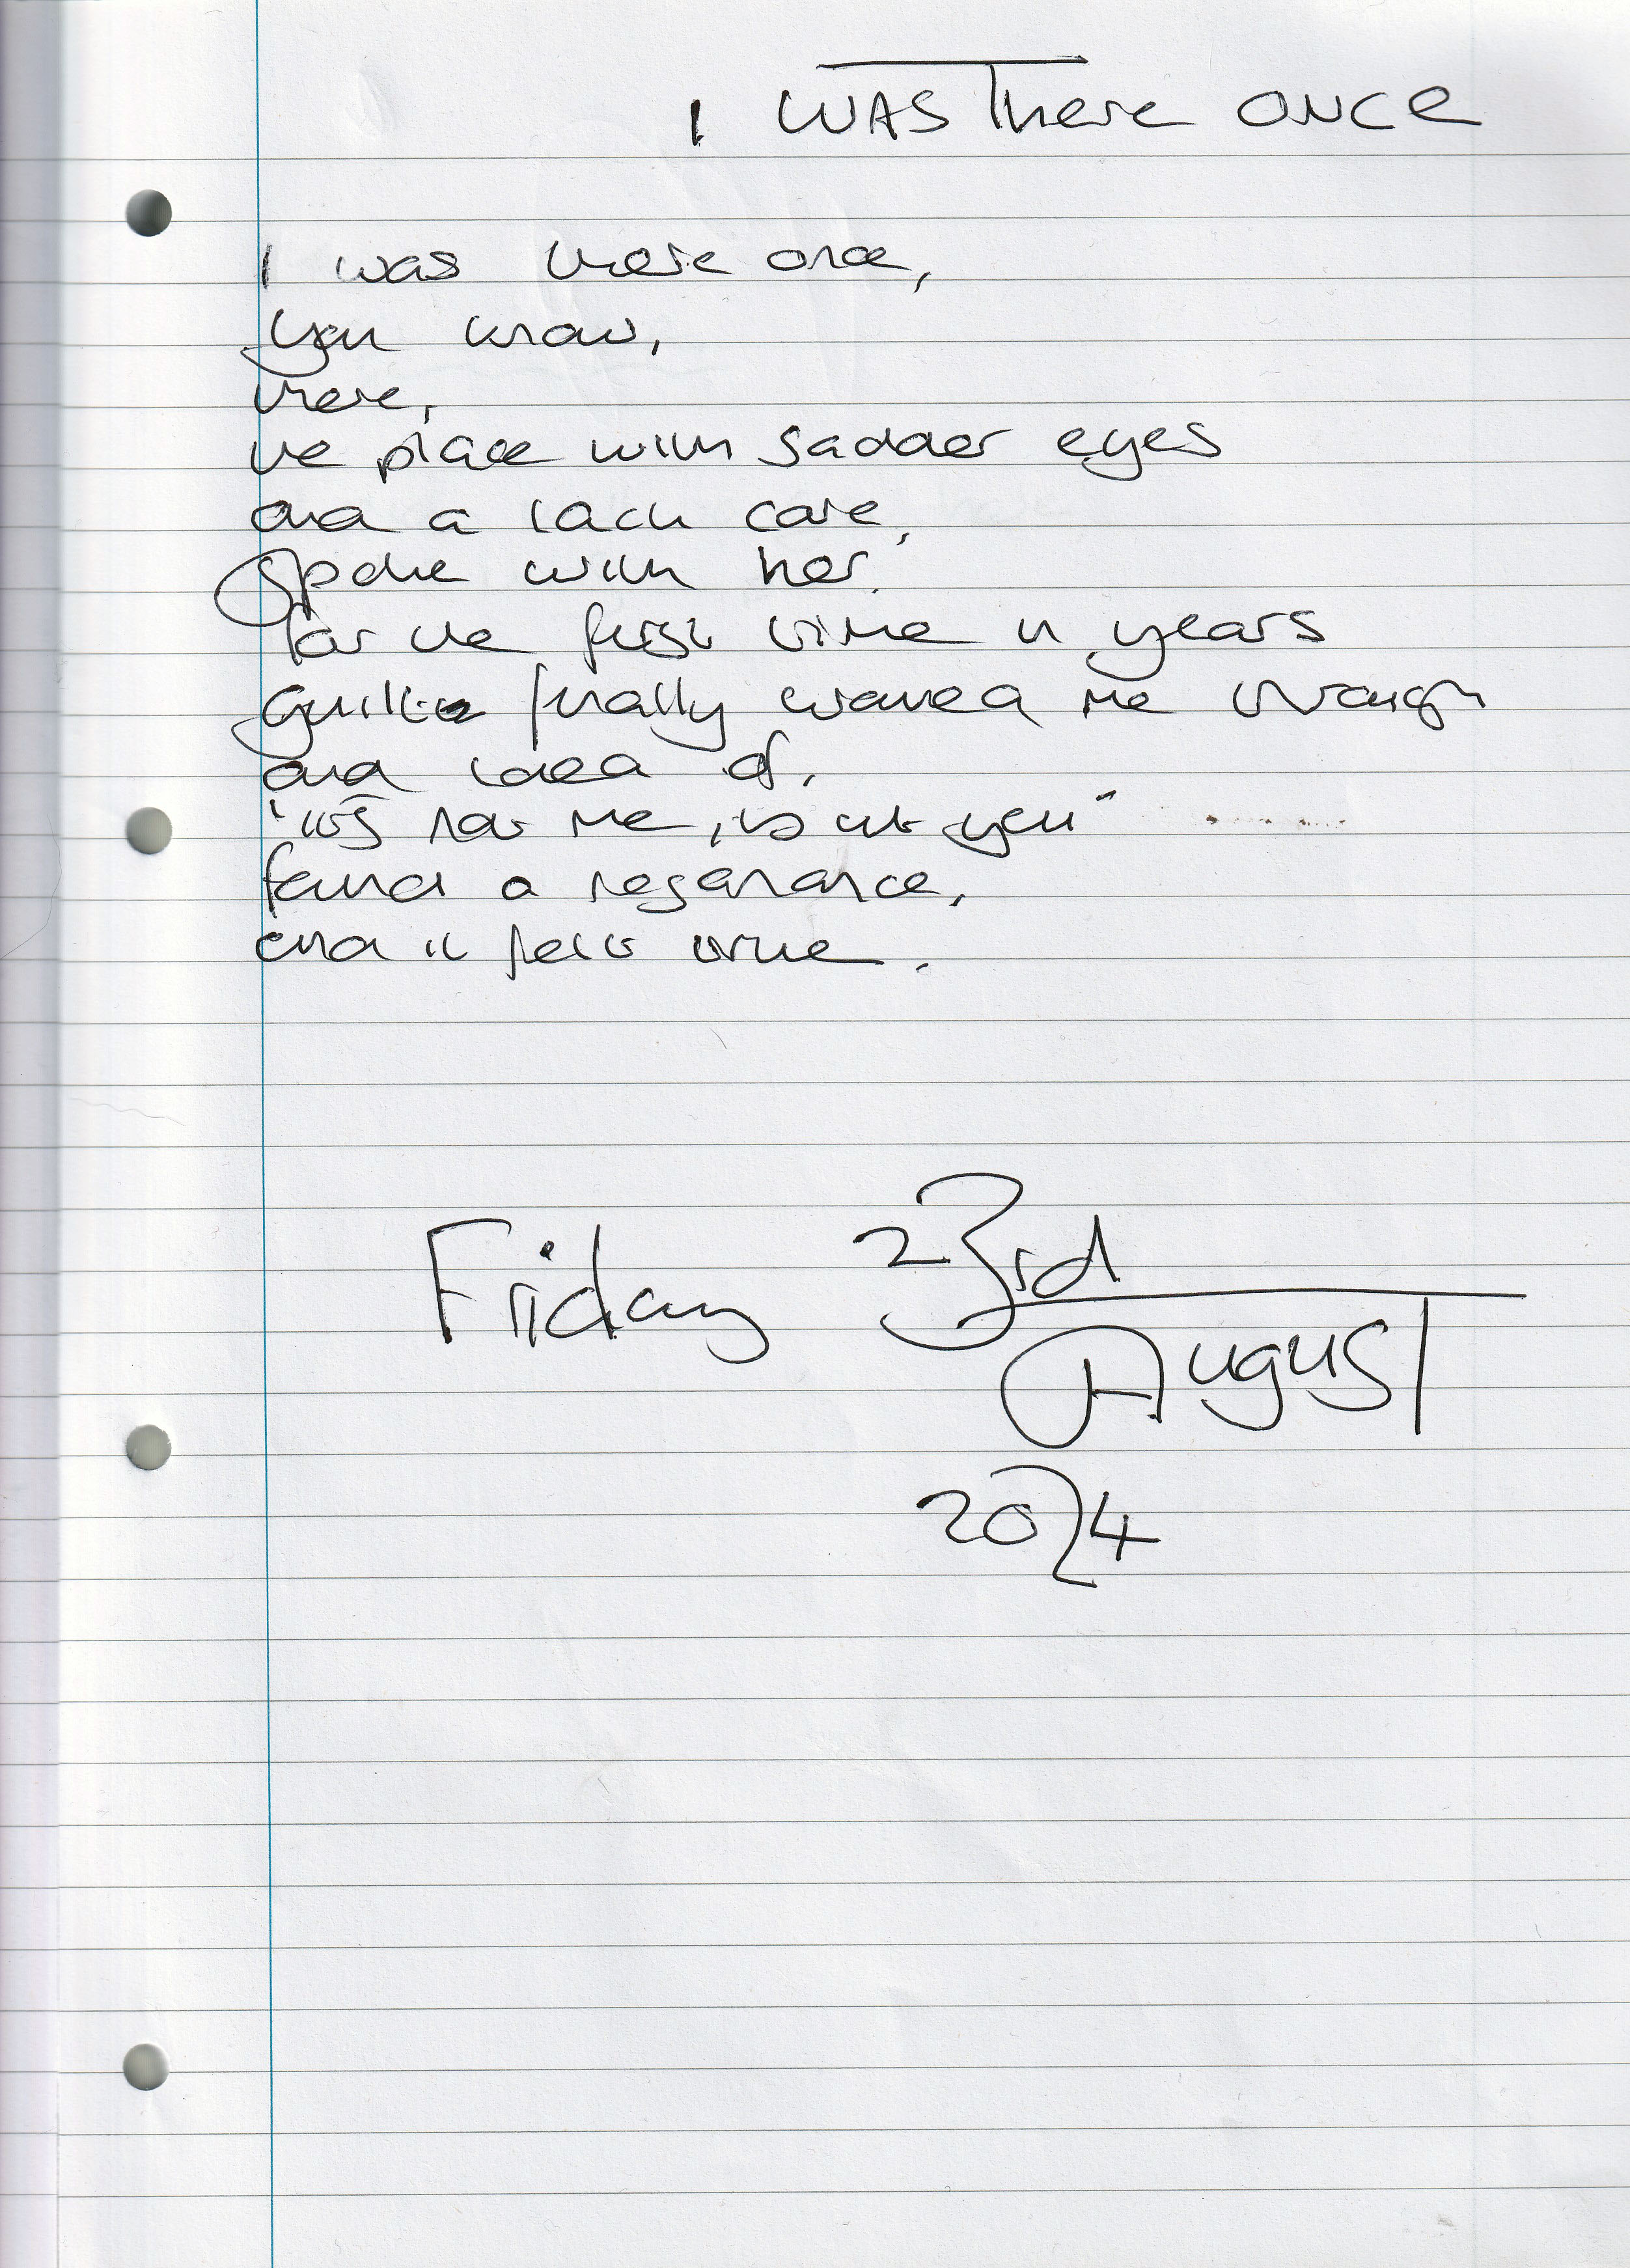 I WAS There ONCE
I was there once,
you know,
there,
the place with sadder eyes
and a lack care,
Spoke with her.
for the first time in years
guilt finally waved me through
and idea of,
"it's not me, its not you"
found a resonance,
and it felt true.
Friday 23rd
August
2024